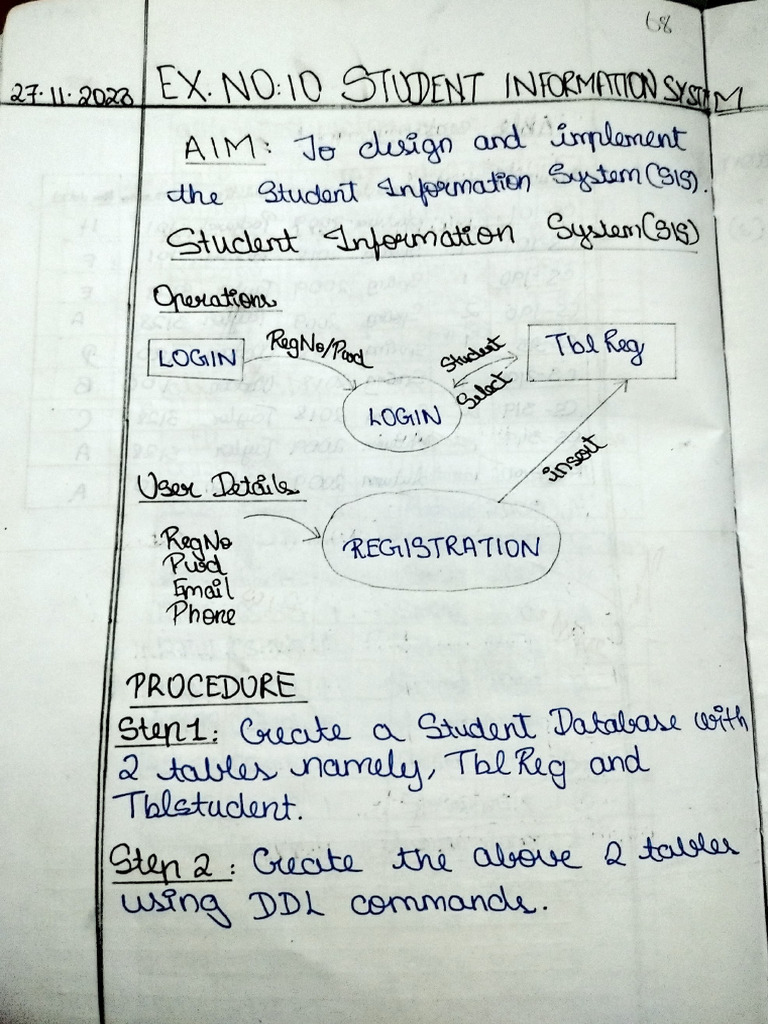 68
27.11.2023 EX.NO:10 STUDENT INFORMATION SYSTEM
AIM: To design and implement
the Student Information System(SIS).
Student Information System(SIS)
Operations
LOGIN
RegNo/Pwd
LOGIN
Student
Select
Tbl Reg
insert
User Details
RegNo
Pwd
Email
Phone
REGISTRATION
PROCEDURE
Step1: Create a Student Database with
2 tables namely, Tbl Reg and
Tblstudent.
Step 2: Create the above 2 tables
using DDL commands.